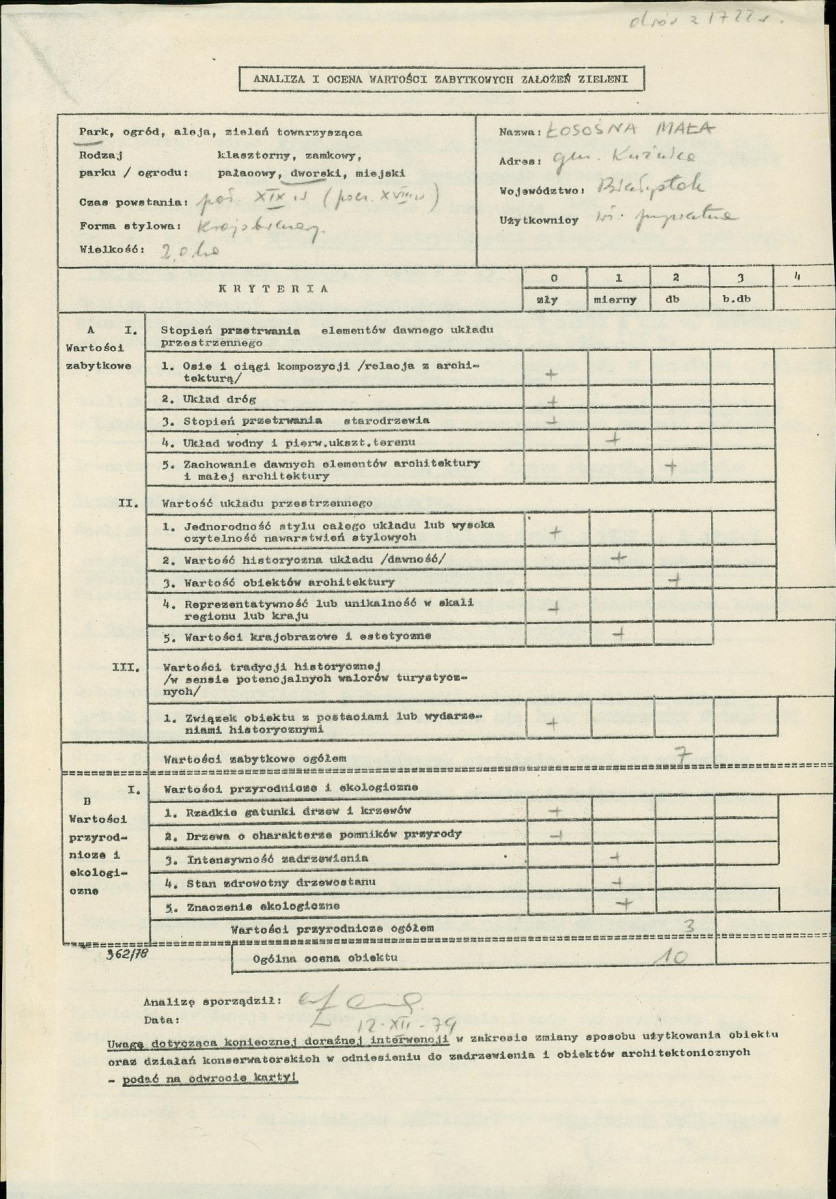 dwór z 1722 r.
ANALIZA I OCENA WARTOŚCI ZABYTKOWYCH ZAŁOŻEŃ ZIELENI
Park, ogród, aleja, zieleń towarzysząca
Rodzaj klasztorny, zamkowy,
parku / ogrodu: pałacowy, dworski, miejski
Czas powstania: poł. XIX w (pocz. XVIII w)
Forma stylowa: Krajobrazowy
Wielkość: 2,0 ha
Nazwa: ŁOSOŚNA MAŁA
Adres: gm. Kuźnica
Województwo: Białystok
Użytkownicy wł. prywatna
KRYTERIA
0 1 2 3 4
zły mierny db b.db
A I. Stopień przetrwania elementów dawnego układu
Wartości przestrzennego
zabytkowe
1. Osie i ciągi kompozycji /relacja z archi-
tekturą/ +
2. Układ dróg +
3. Stopień przetrwania starodrzewia +
4. Układ wodny i pierw.ukszt.terenu +
5. Zachowanie dawnych elementów architektury
i małej architektury +
II. Wartość układu przestrzennego
1. Jednorodność stylu całego układu lub wysoka
czytelność nawarstwień stylowych +
2. Wartość historyczna układu /dawność/ +
3. Wartość obiektów architektury +
4. Reprezentatywność lub unikalność w skali
regionu lub kraju +
5. Wartości krajobrazowe i estetyczne +
III. Wartości tradycji historycznej
/w sensie potencjalnych walorów turystycz-
nych/
1. Związek obiektu z postaciami lub wydarze-
niami historycznymi +
Wartości zabytkowe ogółem 7
B I. Wartości przyrodnicze i ekologiczne
Wartości
przyrod-
nicze i
ekologi-
czne
1. Rzadkie gatunki drzew i krzewów +
2. Drzewa o charakterze pomników przyrody +
3. Intensywność zadrzewienia +
4. Stan zdrowotny drzewostanu +
5. Znaczenie ekologiczne +
Wartości przyrodnicze ogółem 3
362/78
Ogólna ocena obiektu 10
Analizę sporządził:
Data: 12-XII-79
Uwagę dotyczącą koniecznej doraźnej interwencji w zakresie zmiany sposobu użytkowania obiektu
oraz działań konserwatorskich w odniesieniu do zadrzewienia i obiektów architektonicznych
- podać na odwrocie karty!